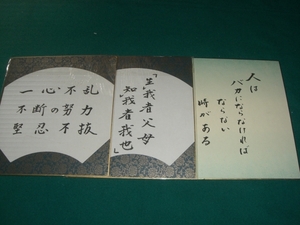 一心不乱
不断の努力
堅忍不抜
「生我者父母
知我者我也」
人は
バカにならなければ
ならない
時がある